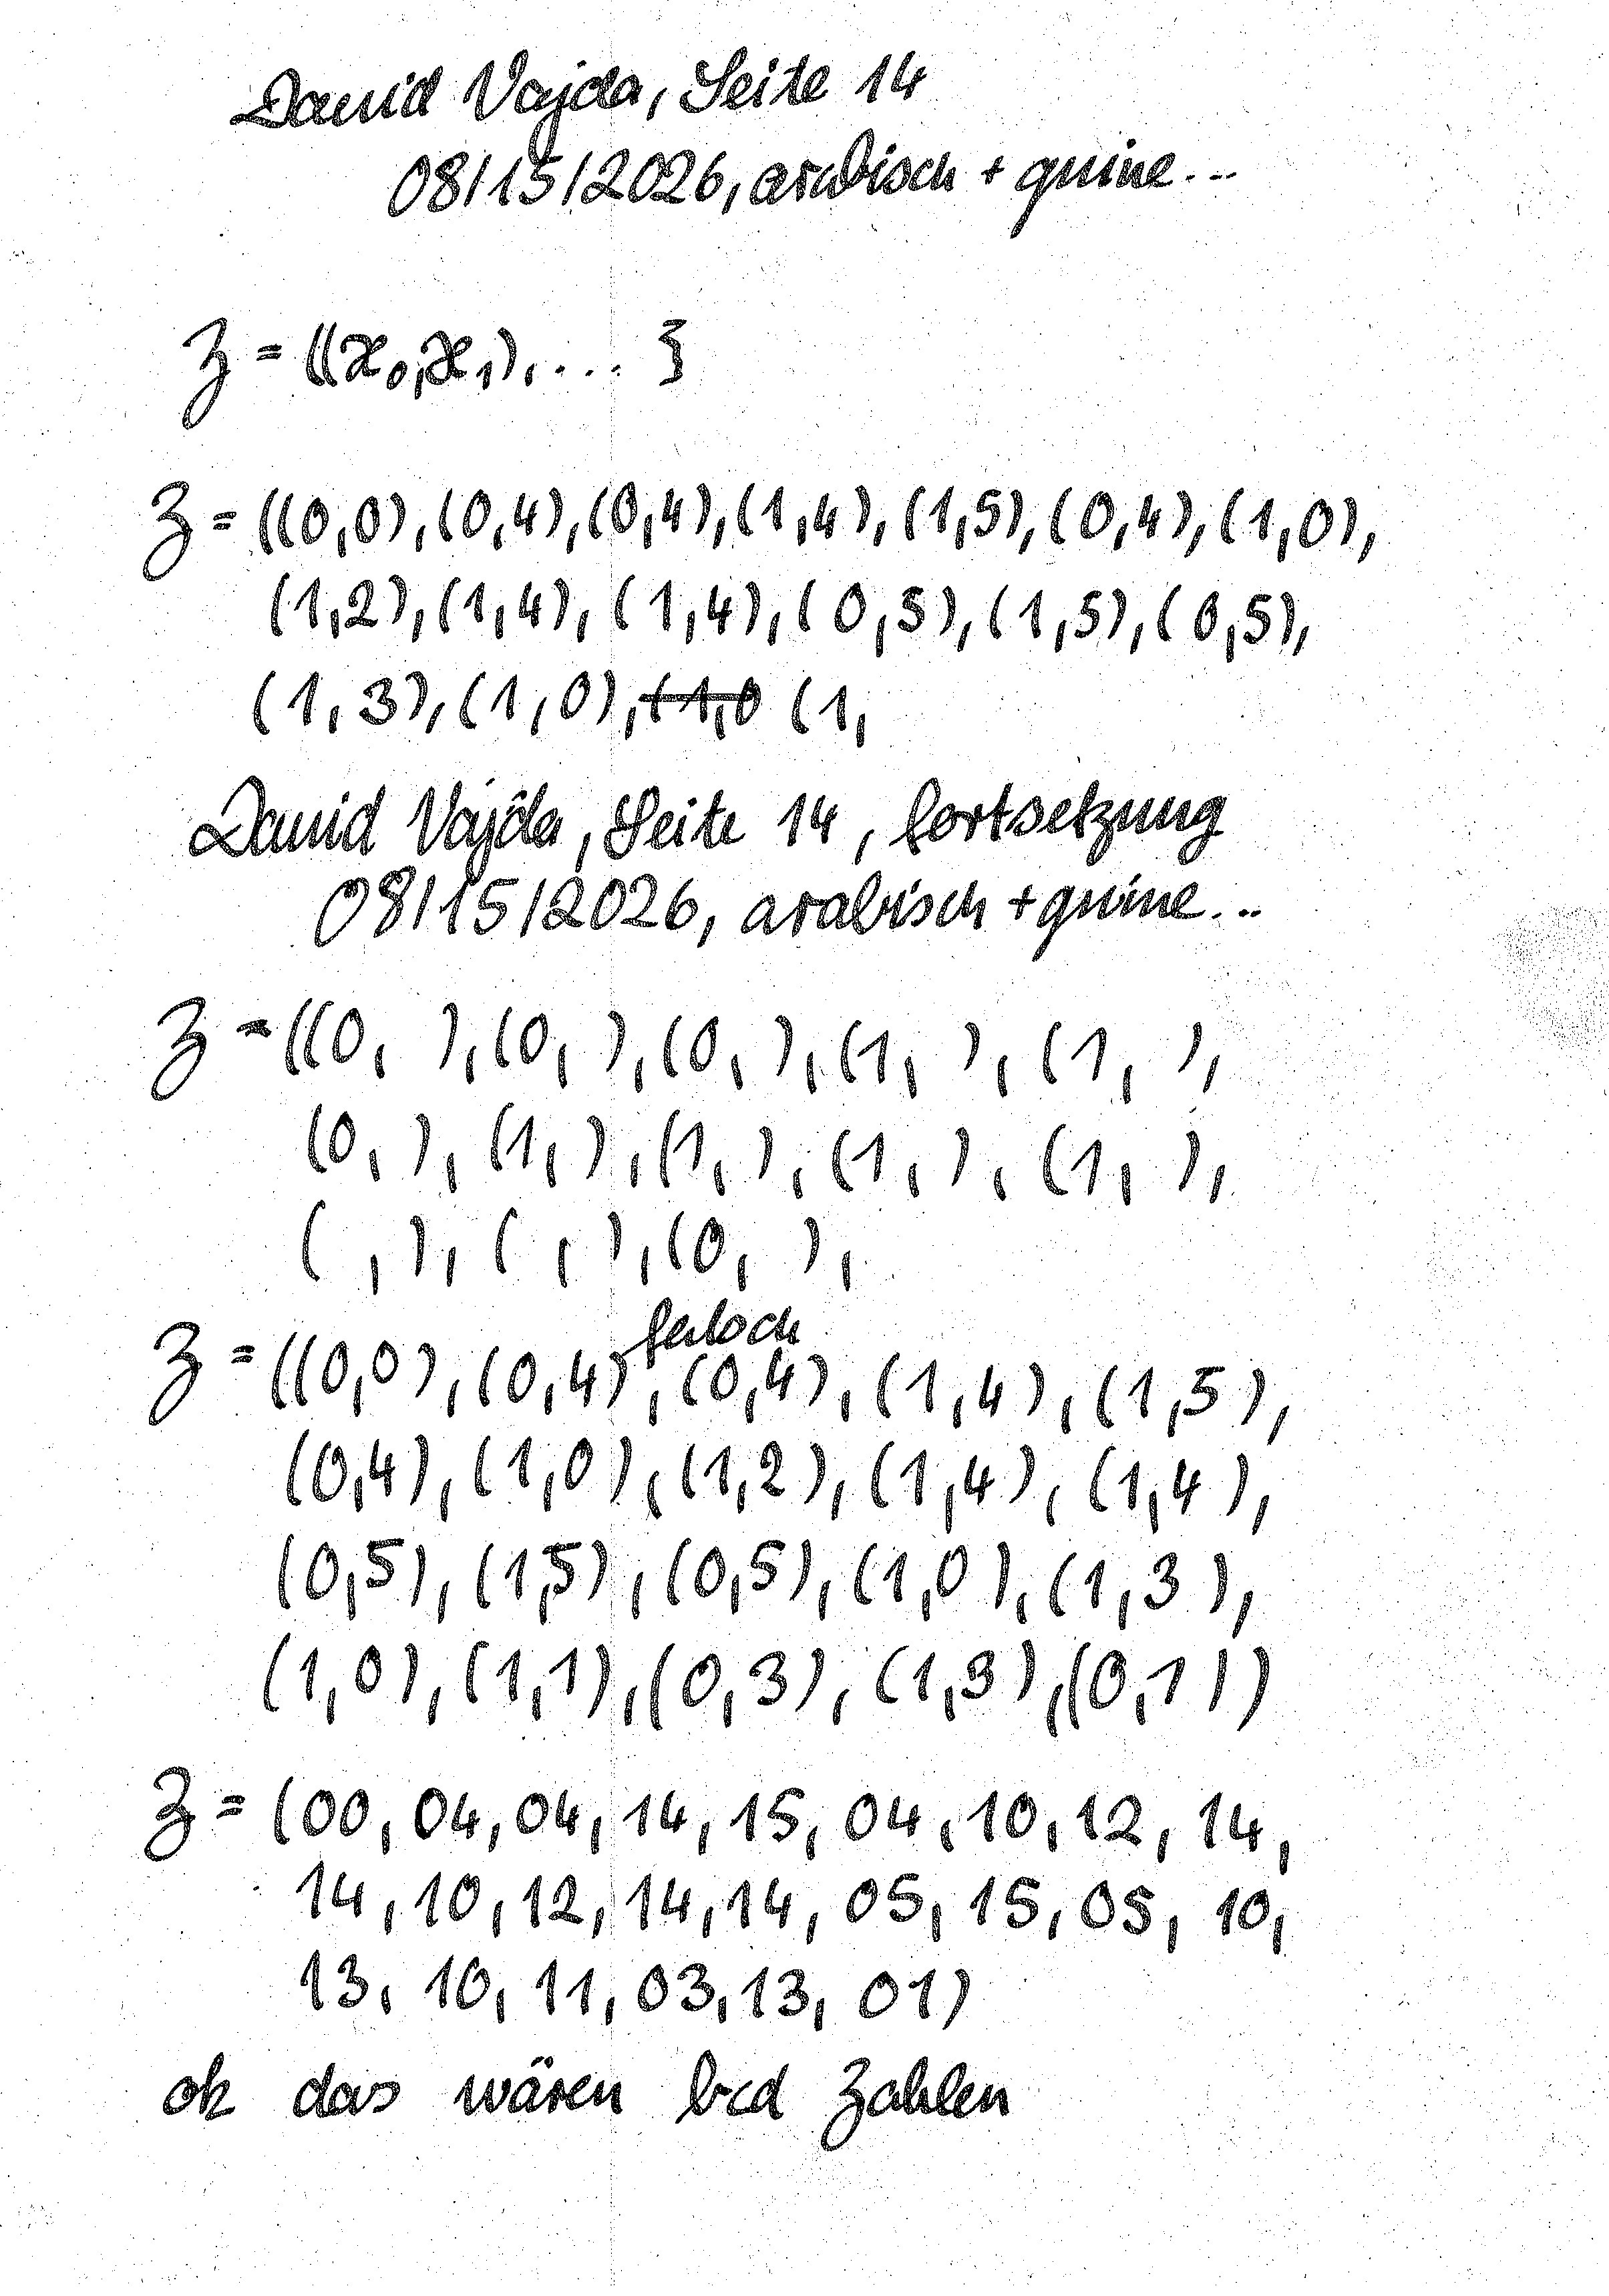 David Vajda, Seite 14
08/15/2026, arabisch + quine...
Z = ((x₀,x₁),... }
Z = ((0,0),(0,4),(0,4),(1,4),(1,5),(0,4),(1,0),
(1,2),(1,4),(1,4),(0,5),(1,5),(0,5),
(1,3),(1,0),(1,0 (1,
David Vajda, Seite 14, fortsetzung
08/15/2026, arabisch + quine...
Z = ((0, ),(0, ),(0, ),(1, ),(1, ),
(0, ),(1, ),(1, ),(1, ),(1, ),
( , ),( , ),(0, ),
Z = ((0,0),(0,4),(0,4),(1,4),(1,5),
(0,4),(1,0),(1,2),(1,4),(1,4),
(0,5),(1,5),(0,5),(1,0),(1,3),
(1,0),(1,1),(0,3),(1,3),(0,1))
Z = (00, 04, 04, 14, 15, 04, 10, 12, 14,
14, 10, 12, 14, 14, 05, 15, 05, 10,
13, 10, 11, 03, 13, 01)
ok das wären bcd Zahlen